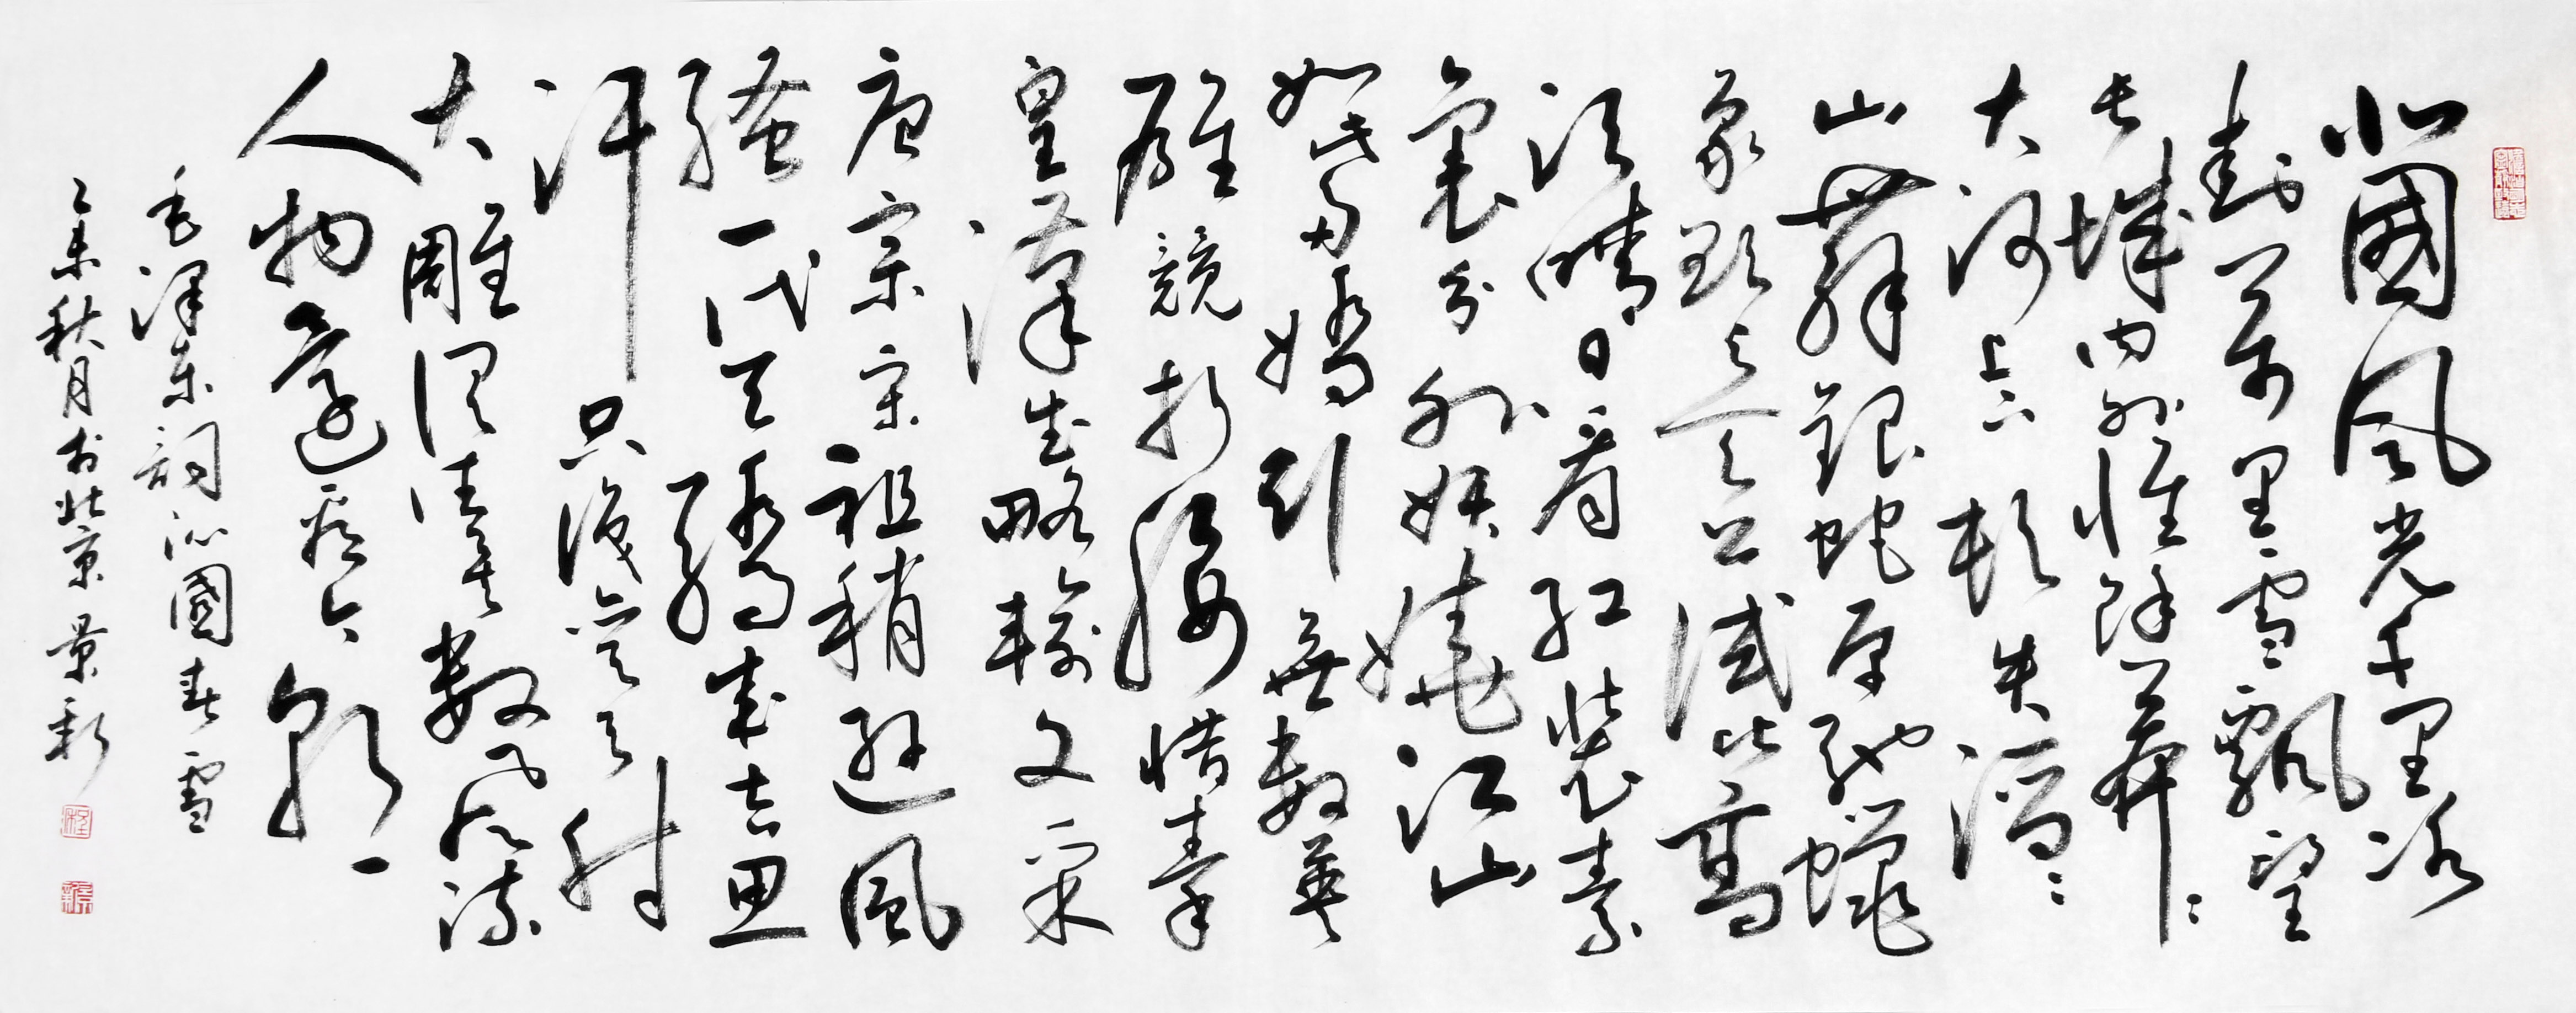 北國風光千里冰
封萬里雪飄望
長城内外惟餘莽〻
大河上下頓失滔〻
山舞銀蛇原馳蠟
象欲与天公試比高
須晴日看紅裝素
裹分外妖嬈江山
如此多嬌引無數英
雄競折腰惜秦
皇漢武略輸文采
唐宗宋祖稍遜風
騷一代天驕成吉思
汗只識彎弓射
大雕俱往矣數風流
人物還看今朝
毛澤東詞沁園春雪
乙未秋月於北京景新